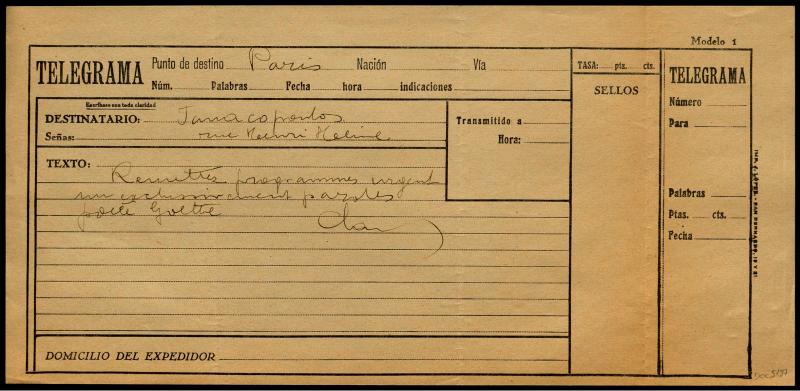 Modelo 1
TELEGRAMA
Punto de destino Paris Nación Vía
Núm. Palabras Fecha hora indicaciones
Escríbase con toda claridad
DESTINATARIO:
Señas: rue Henri Heine
Transmitido a
Hora:
TEXTO:
Remettre programmes urgent
exclusivement paroles
poète Goethe
DOMICILIO DEL EXPEDIDOR
TASA: pts. cts.
SELLOS
TELEGRAMA
Número
Para
Palabras
Ptas. cts.
Fecha